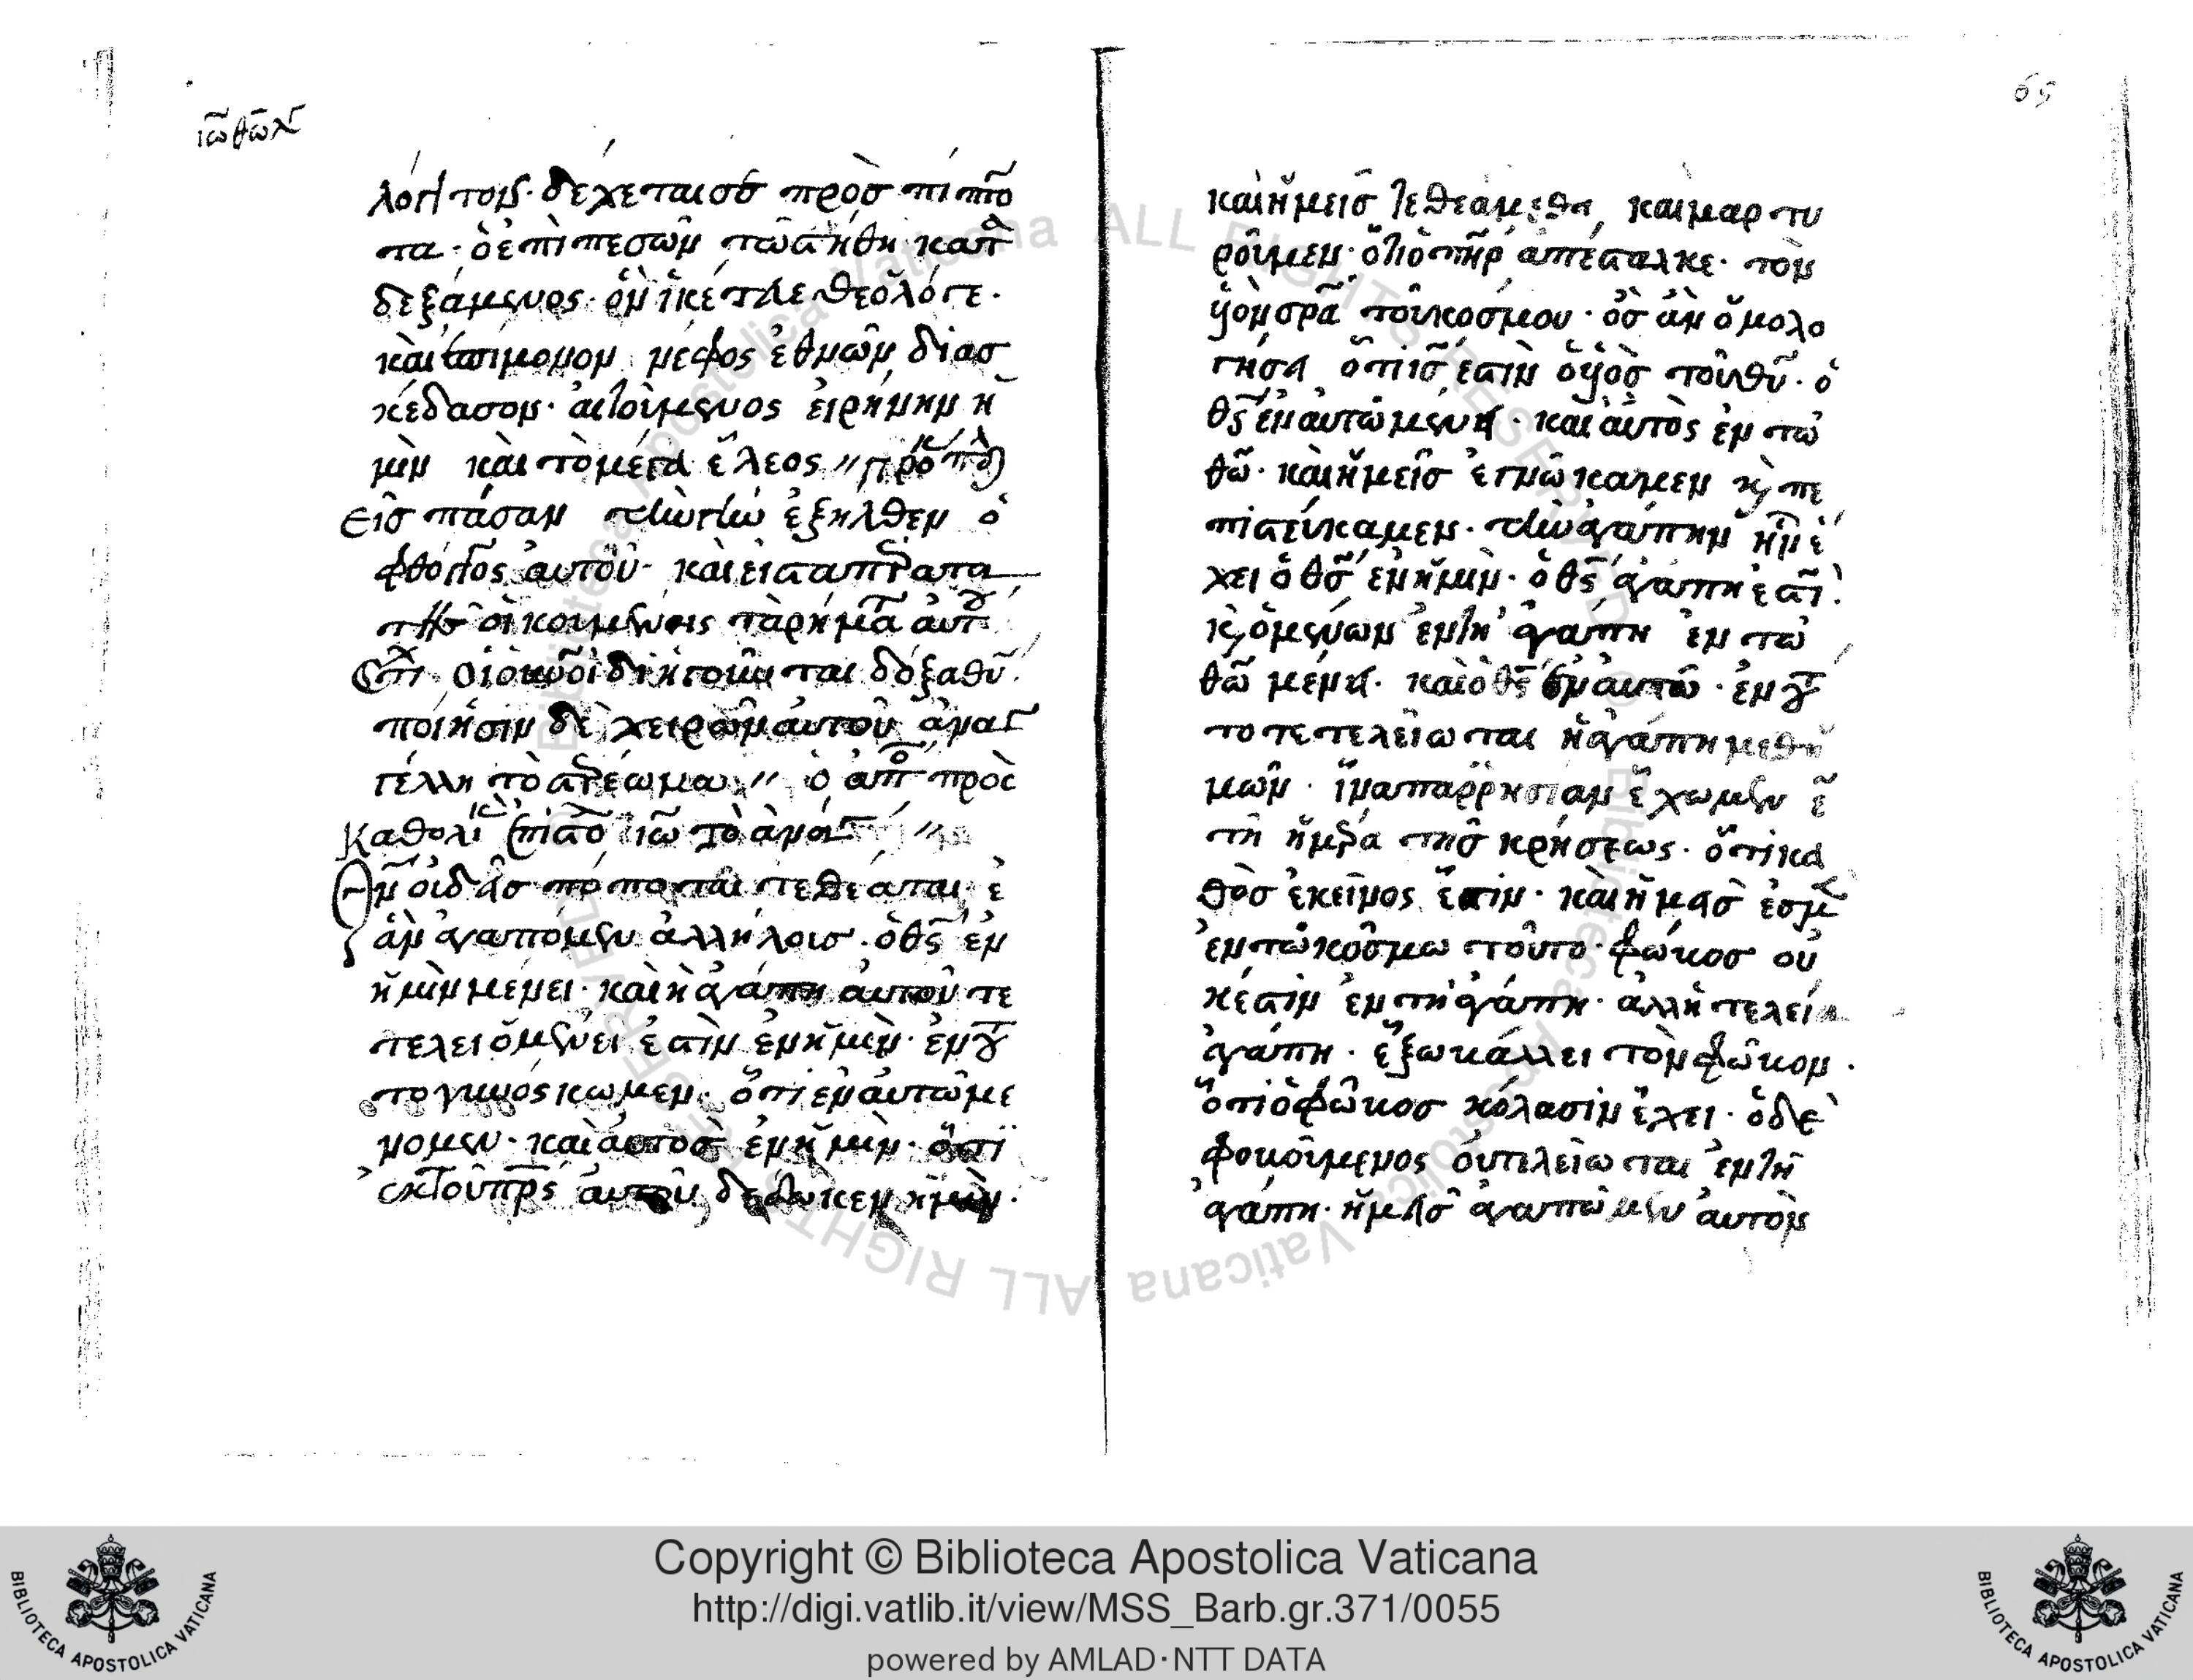 ἰω θωλ
λόγοις· δέχεταισε πρὸσ πίπτο
τα· ὁἐπὶπεσὼν τῶστήθη καὶ
δεξάμενος· ὃν ἱκέτευε θεολόγε·
καὶ ἐπίμονον νέφος ἐθνῶν διασ
κέδασον· αἰτούμενος εἰρήνην ἡ
μὶν καὶ τὸμέγα ἔλεος // προκ
Εἰσ πάσαν τὴν γὴν ἐξήλθεν ὁ
φθόγγος αὐτοῦ· καὶ εἰσταπέρατα
τῆσ οἰκουμένεις τὰρήματα αὐτ
στι· οἱ οὐνοὶ διηγοῦνται δόξαθυ·
ποιήσιν δὲ χειρῶναὐτοῦ ἀναγ
γέλλη τὸστερέωμα // ὁ ἀπο πρὸς
Καθολικ ἐπιστο ἰω τὸ ἀνάγ //
Θν οὐδεὶσ πόποται τεθέαται· ἐ
ὰν ἀγαπόμεν ἀλλήλοισ· ὁθς ἐν
ἡμὶν μένει· καὶ ἡ ἀγάπη αὐτοῦ τε
τελειομένει ἐστὶν ἐνἡμὶν· ἐντού
το γινόσκωμεν· ὅτι ἐναὐτῶμέ
νομεν· καὶ αὐτὸσ ἐνἡμὶν· ὅτι
ἐκτοῦπνς αὐτοῦ δέδωκεν ἡμὶν·
65
καὶ ἡμεῖσ τεθεάμεθα, καὶμαρτυ
ροῦμεν· ὅτιὁπηρ ἀπέσταλκε· τὸν
ὑὸνσρα τοῦκοσμου· ὃσ ἂν ὁμολο
γήσει ὅτιισ ἐστὶν ὁὑὸσ τοῦθυ· ὁ
θς ἐναὐτῶμένει· καὶ αὐτὸς ἐν τῶ
θω· καὶ ἡμεῖσ ἐγνῶκαμεν κ πε
πιστεύκαμεν· τὴν ἀγάπην ἣν ἔ
χει ὁ θσ ἐν ἡμὶν· ὁ θς ἀγάπη ἐστι·
κ ὁμένων ἐντῆ ἀγάπη ἐν τῶ
θω μένει· καὶ ὁ θς ἐναὐτῶ· ἐντού
το τετελείωται ἡ ἀγάπη μεθἡ
μῶν· ἵναπαρρησίαν ἔχωμεν ἐ
τῆ ἡμέρα τῆσ κρήσεως· ὅτικα
θὸσ ἐκεῖνος ἔστιν· καὶ ἡμεῖσ ἐσμὲ
ἐντῶκόσμω τοῦτο· φώκοσ οὐ
κέστιν ἐν τῆ ἀγάπη· ἀλλἡ τελεία
ἀγάπη· ἔξωκάλλει τὸν φῶκον·
ὅτιὁφῶκοσ κόλασιν ἔχει· ὁδὲ
φοκοῦμενος οὐτελείωται ἐντῆ
ἀγάπη· ἡμεῖσ ἀγαπῶμεν αὐτὸν
Copyright © Biblioteca Apostolica Vaticana
http://digi.vatlib.it/view/MSS_Barb.gr.371/0055
powered by AMLAD·NTT DATA
BIBLIOTECA APOSTOLICA VATICANA
BIBLIOTECA APOSTOLICA VATICANA